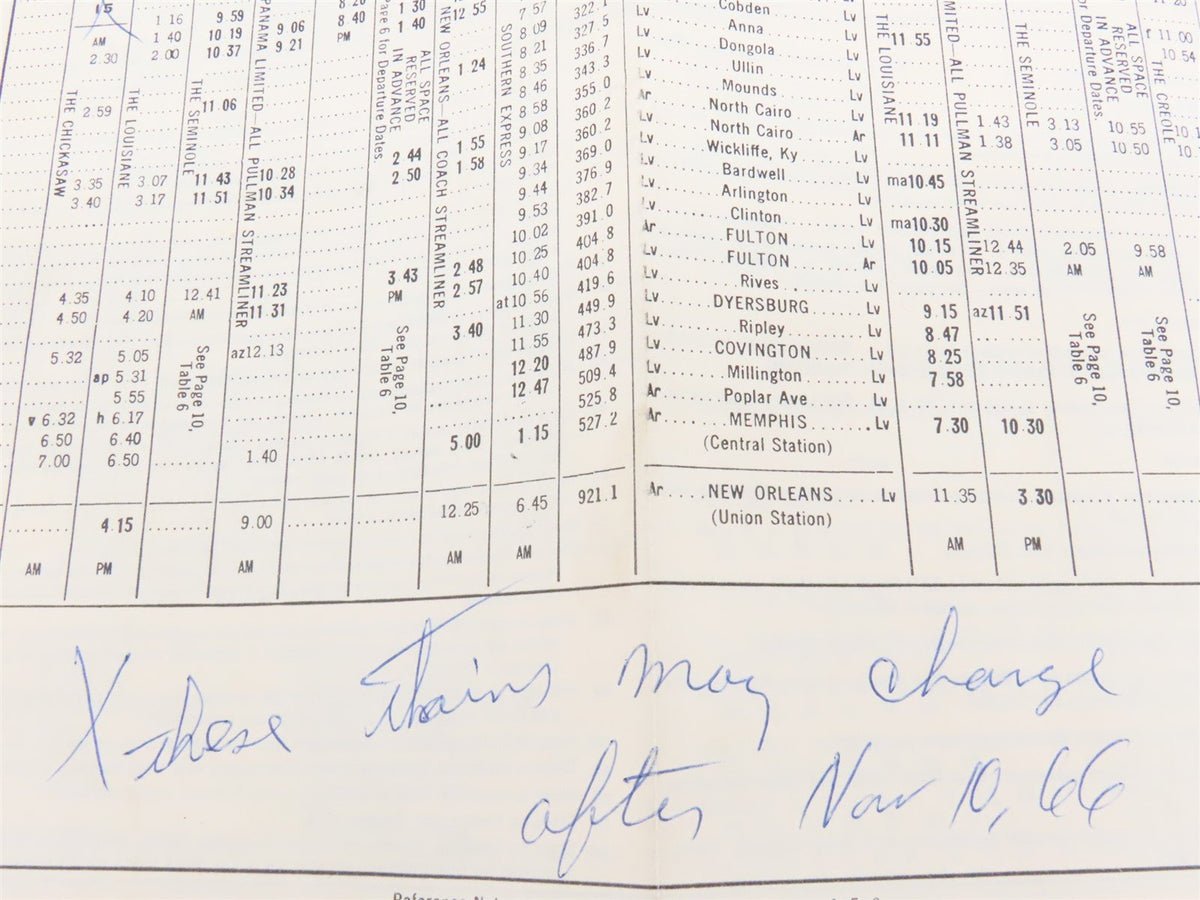 15 1 16 9 59 8 40 1 30 12 55 7 57 322.1 Lv Cobden Lv
AM 1 40 10 19 9 06 PM 1 40 8 09 327.5 Lv Anna Lv 11 55 r 11 00
2 30 2 00 10 37 9 21 8 21 336.7 Lv Dongola Lv 10 54
1 24 8 35 343.3 Lv Ullin Lv
8 46 355.0 Lv Mounds Lv
2 59 11 06 8 58 360.2 Ar North Cairo Lv 11 19 1.43 3.13 10 55
1 55 9 08 360.2 Lv North Cairo Ar 11 11 1.38 3.05 10 50
2 44 1 58 9 17 369.0 Lv Wickliffe, Ky Lv
3.35 3.07 11 43 10.28 2 50 9 34 376.9 Lv Bardwell Lv ma10.45
3.40 3.17 11 51 10.34 9 44 382.7 Lv Arlington Lv
9 53 391 0 Lv Clinton Lv ma10.30
10.02 404.8 Ar FULTON Lv 10.15 12.44 2.05 9 58
10.25 404.8 Lv FULTON Ar 10.05 12.35 AM AM
3 43 2 48 10.40 419.6 Lv Rives Lv
4.35 4.10 12.41 11.23 PM 2 57 at10 56 449.9 Lv DYERSBURG Lv 9.15 az11.51
4.50 4.20 AM 11.31 3 40 11.30 473.3 Lv Ripley Lv 8.47
5.32 5.05 az12.13 11 55 487.9 Lv COVINGTON Lv 8.25
ap 5 31 12 20 509.4 Lv Millington Lv 7.58
5 55 12 47 525.8 Ar Poplar Ave Lv
v 6.32 h 6.17 527.2 Ar MEMPHIS Lv 7.30 10 30
6.50 6.40 5.00 1.15 (Central Station)
7.00 6.50 1.40
4.15 9.00 12.25 6.45 921.1 Ar NEW ORLEANS Lv 11.35 3.30
(Union Station)
AM PM AM AM AM AM PM
THE CHICKASAW
THE LOUISIANE
THE SEMINOLE
See Page 10, Table 6
PANAMA LIMITED—ALL PULLMAN STREAMLINER
Page 6 for Departure Dates.
ALL SPACE RESERVED IN ADVANCE
See Page 10, Table 6
NEW ORLEANS ALL COACH STREAMLINER
SOUTHERN EXPRESS
THE LOUISIANE
MITED—ALL PULLMAN STREAMLINER
THE SEMINOLE
or Departure Dates.
ALL SPACE RESERVED IN ADVANCE
See Page 10, Table 6
THE CREOLE
See Page 10, Table 6
X these trains may change
after Nov 10, 66